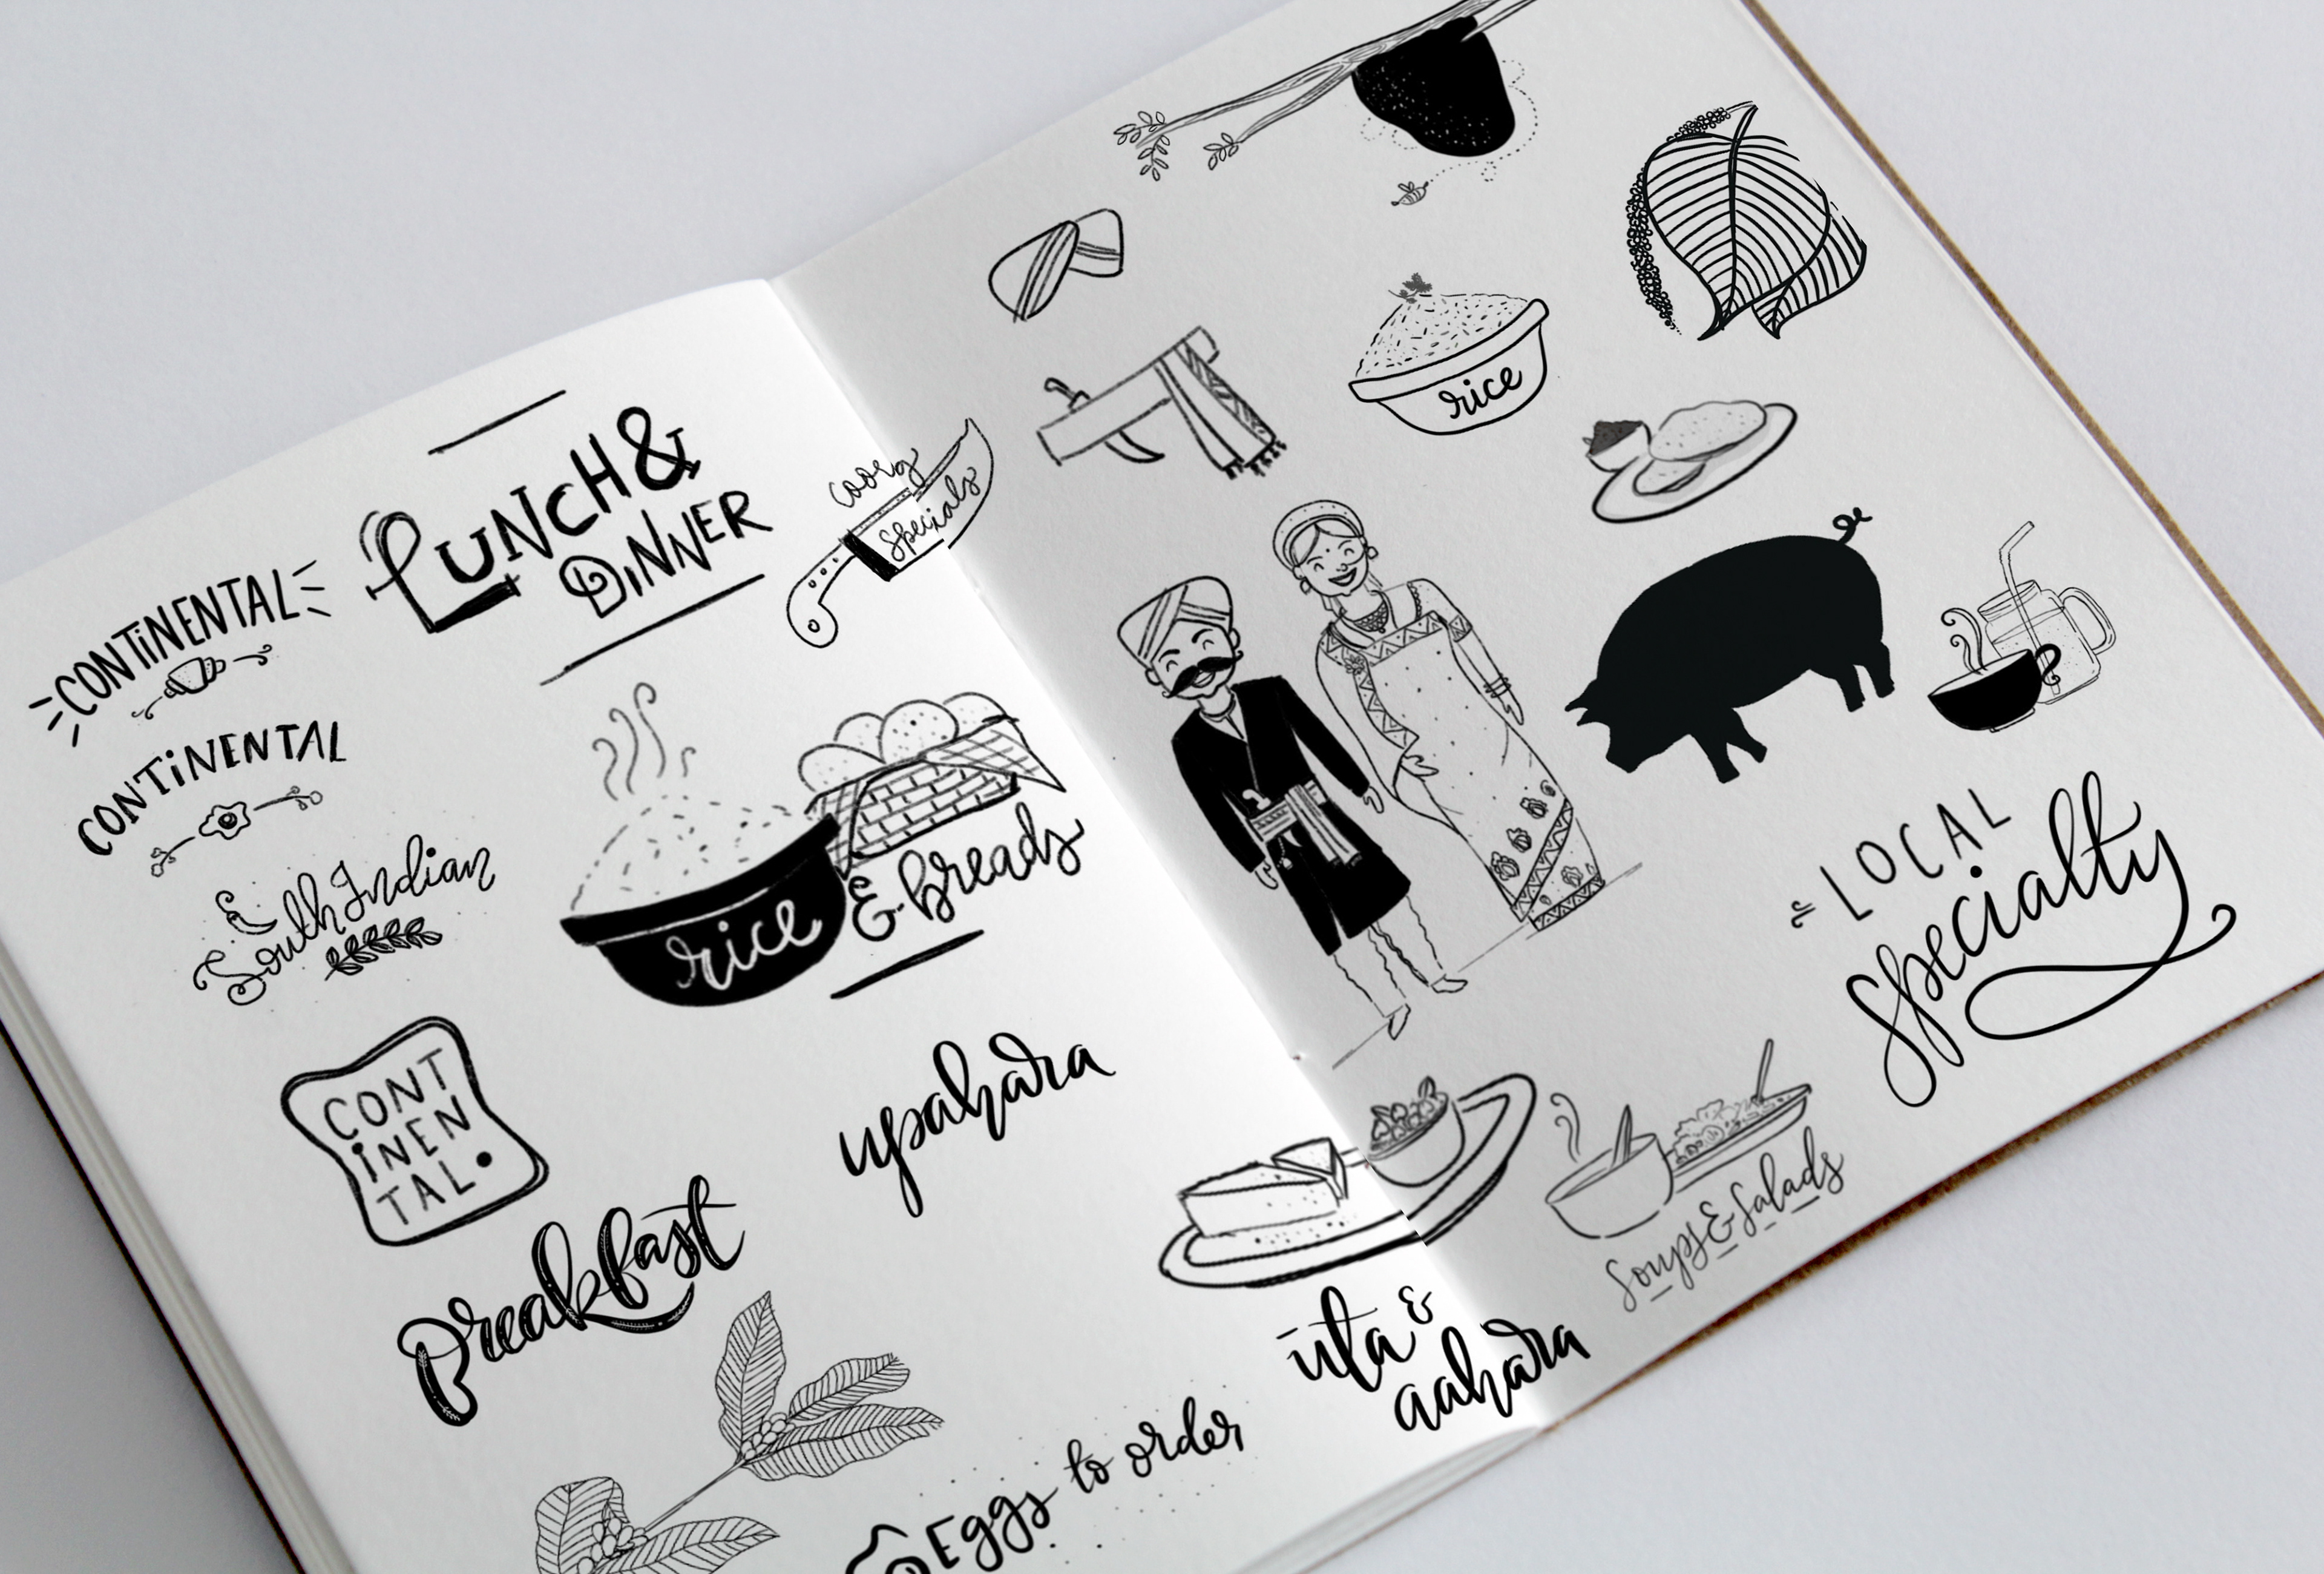 LUNCH &
DINNER
coorg
specials
CONTINENTAL
CONTINENTAL
&
South Indian
rice
& breads
CONT
INEN
TAL.
upahara
Breakfast
Eggs to order
rice
LOCAL
specialty
Soups & Salads
ūta &
aahara